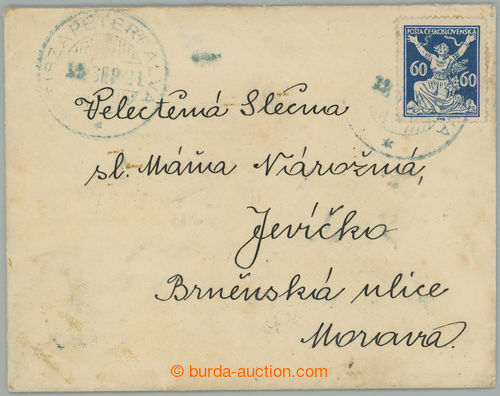 TISZAPÉTERFALVA
POŠTA ČESKOSLOVENSKÁ
60 60
Velectěná Slečna
sl. Máňa Nárožná,
Jevíčko
Brněnská ulice
Morava.
© burda-auction.com